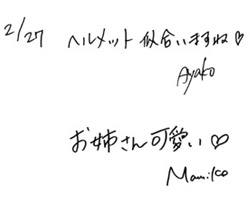 2/27 ヘルメット似合いますね♡
Ayako
お姉さん可愛い♡
Mamiko